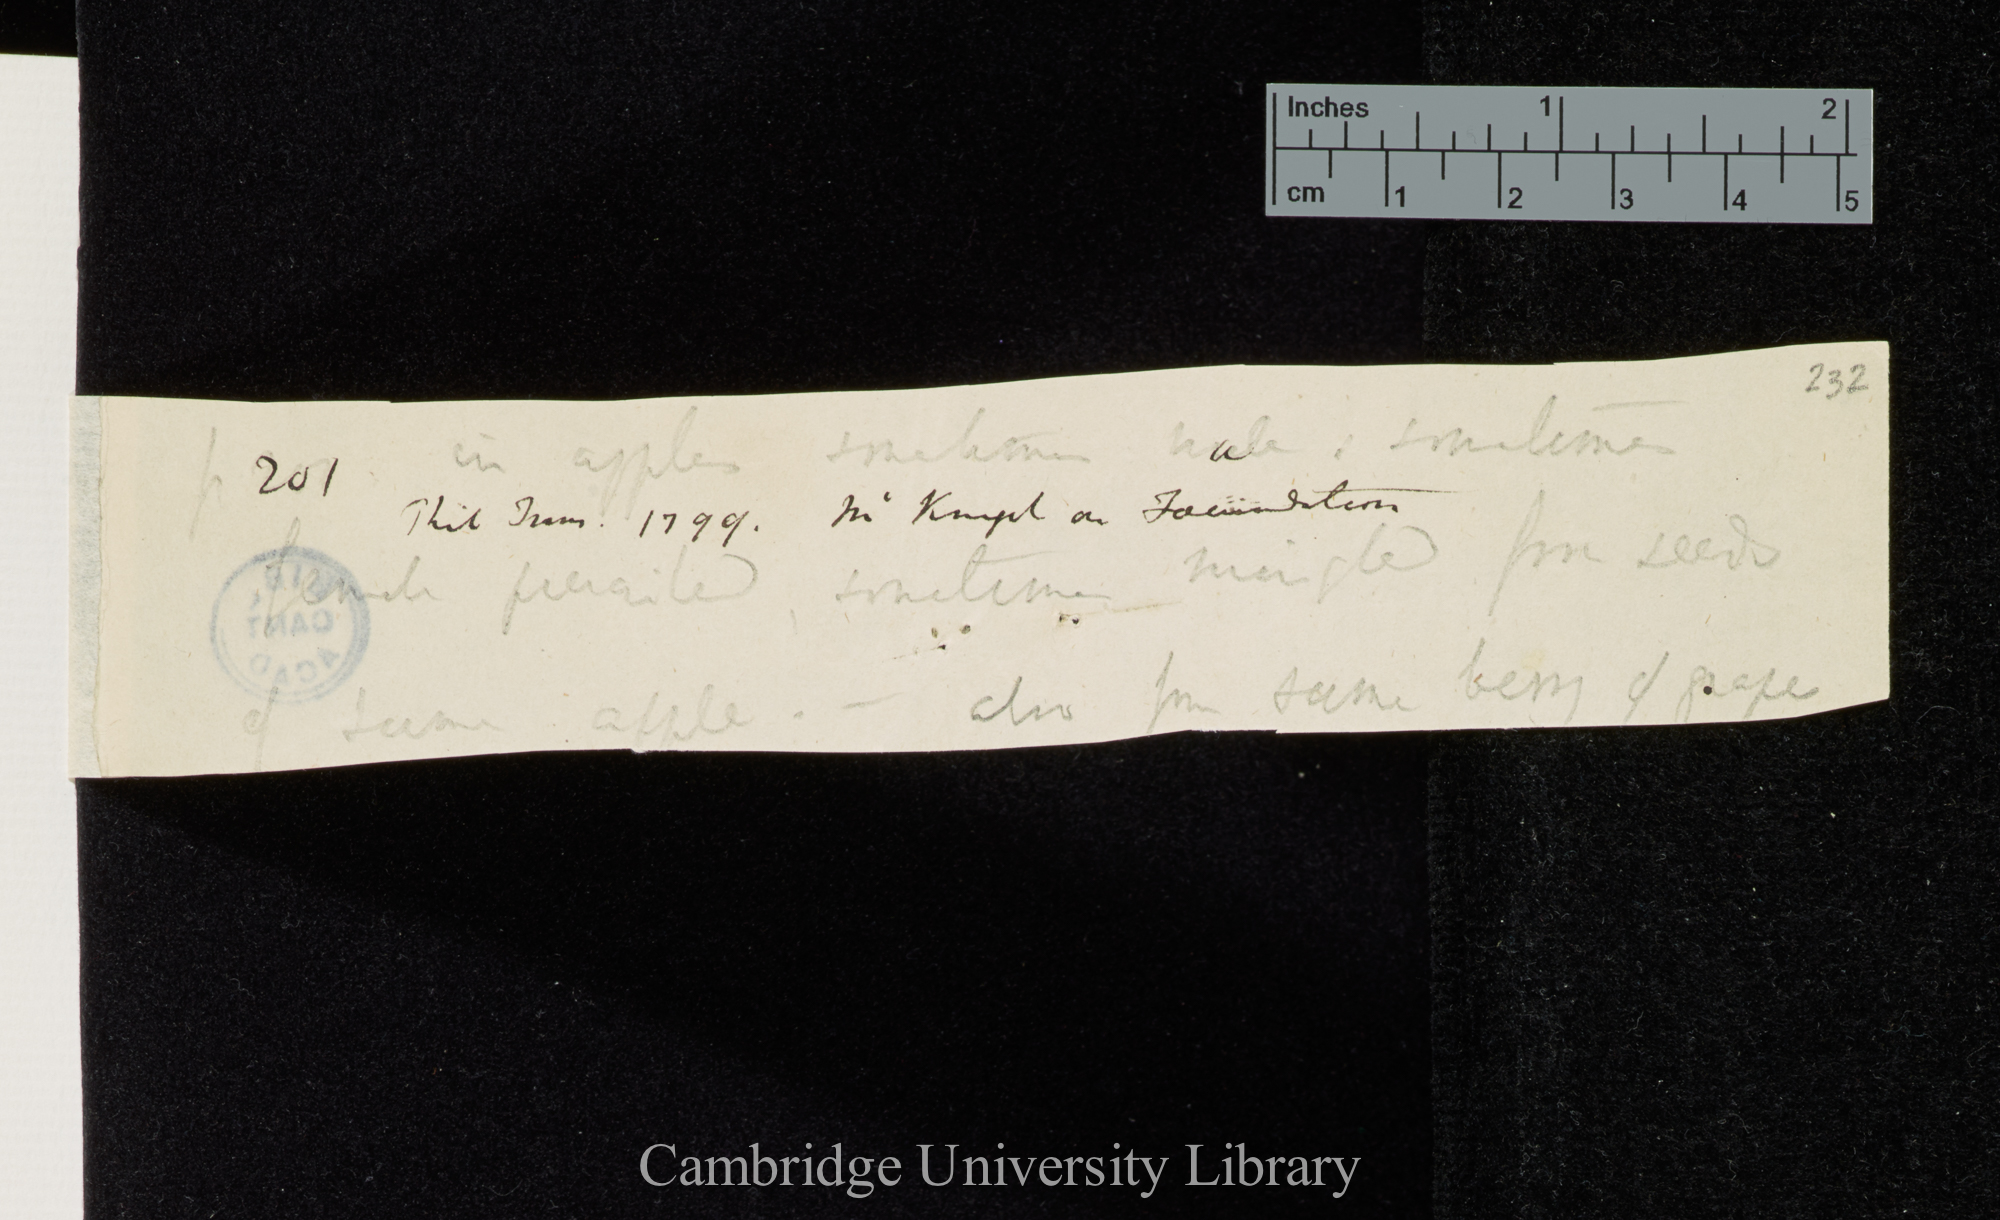 Inches 1 2
cm 1 2 3 4 5
232
p 201 in apples sometimes male, sometimes
Phil Trans. 1799. Mr Knight on Fecundation
female prevailed, sometimes mingled from seeds
of same apple. — also from same berry of grapes
CANT
ACAD
Cambridge University Library